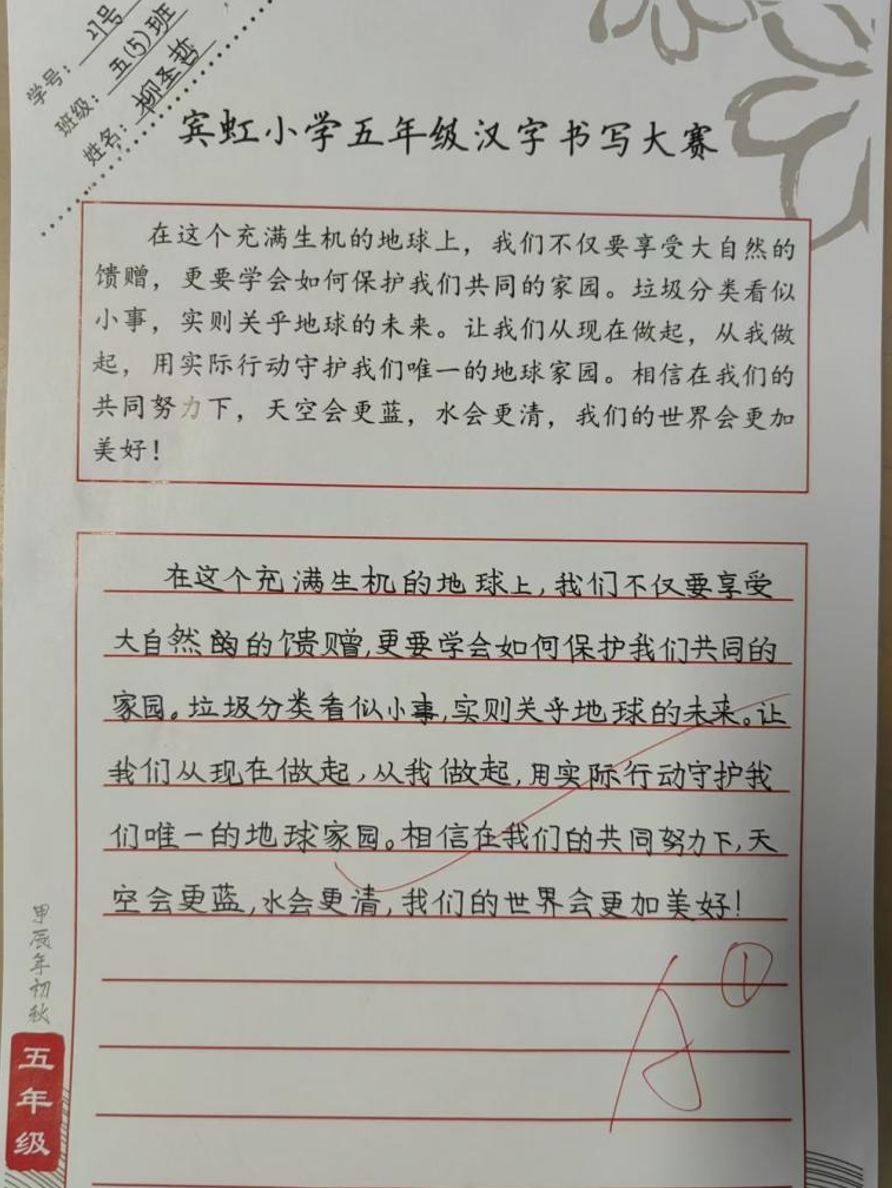 学号：21号
班级：五(5)班
姓名：柳圣哲
宾虹小学五年级汉字书写大赛
在这个充满生机的地球上，我们不仅要享受大自然的
馈赠，更要学会如何保护我们共同的家园。垃圾分类看似
小事，实则关乎地球的未来。让我们从现在做起，从我做
起，用实际行动守护我们唯一的地球家园。相信在我们的
共同努力下，天空会更蓝，水会更清，我们的世界会更加
美好！
在这个充满生机的地球上，我们不仅要享受
大自然的的馈赠，更要学会如何保护我们共同的
家园。垃圾分类看似小事，实则关乎地球的未来。让
我们从现在做起，从我做起，用实际行动守护我
们唯一的地球家园。相信在我们的共同努力下，天
空会更蓝，水会更清，我们的世界会更加美好！
A①
甲辰年初秋
五年级